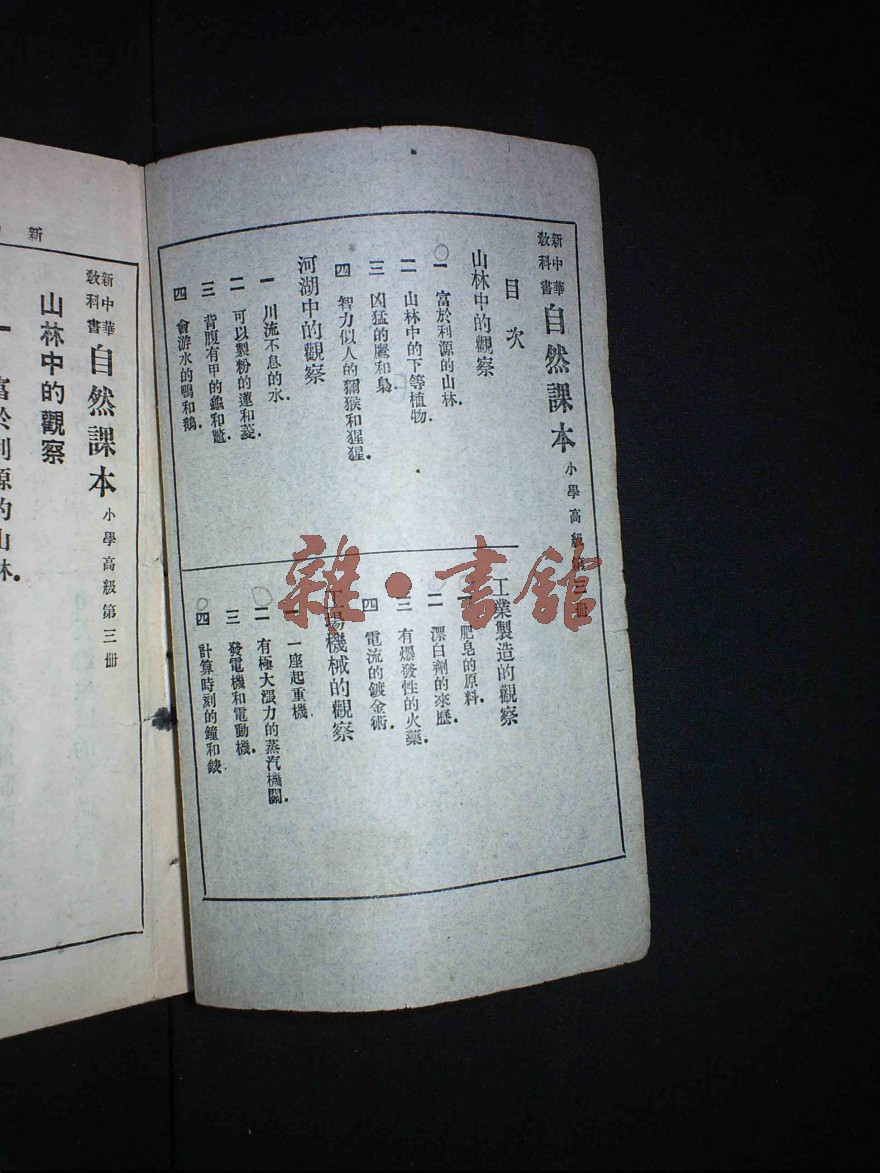 新中華
教科書
自然課本 小學高級第三冊
目次
山林中的觀察
一 富於利源的山林.
二 山林中的下等植物.
三 凶猛的鷹和梟.
四 智力似人的獼猴和猩猩.
河湖中的觀察
一 川流不息的水.
二 可以製粉的蓮和菱.
三 背腹有甲的龜和鼈.
四 會游水的鴨和鵝.
工業製造的觀察
一 肥皂的原料.
二 漂白劑的來歷.
三 有爆發性的火藥.
四 電流的鍍金術.
工場機械的觀察
一 一座起重機
二 有極大漲力的蒸汽機關.
三 發電機和電動機.
四 計算時刻的鐘和錶
雜·書館
新
新中華
教科書
自然課本 小學高級第三冊
山林中的觀察
一 富於利源的山林.